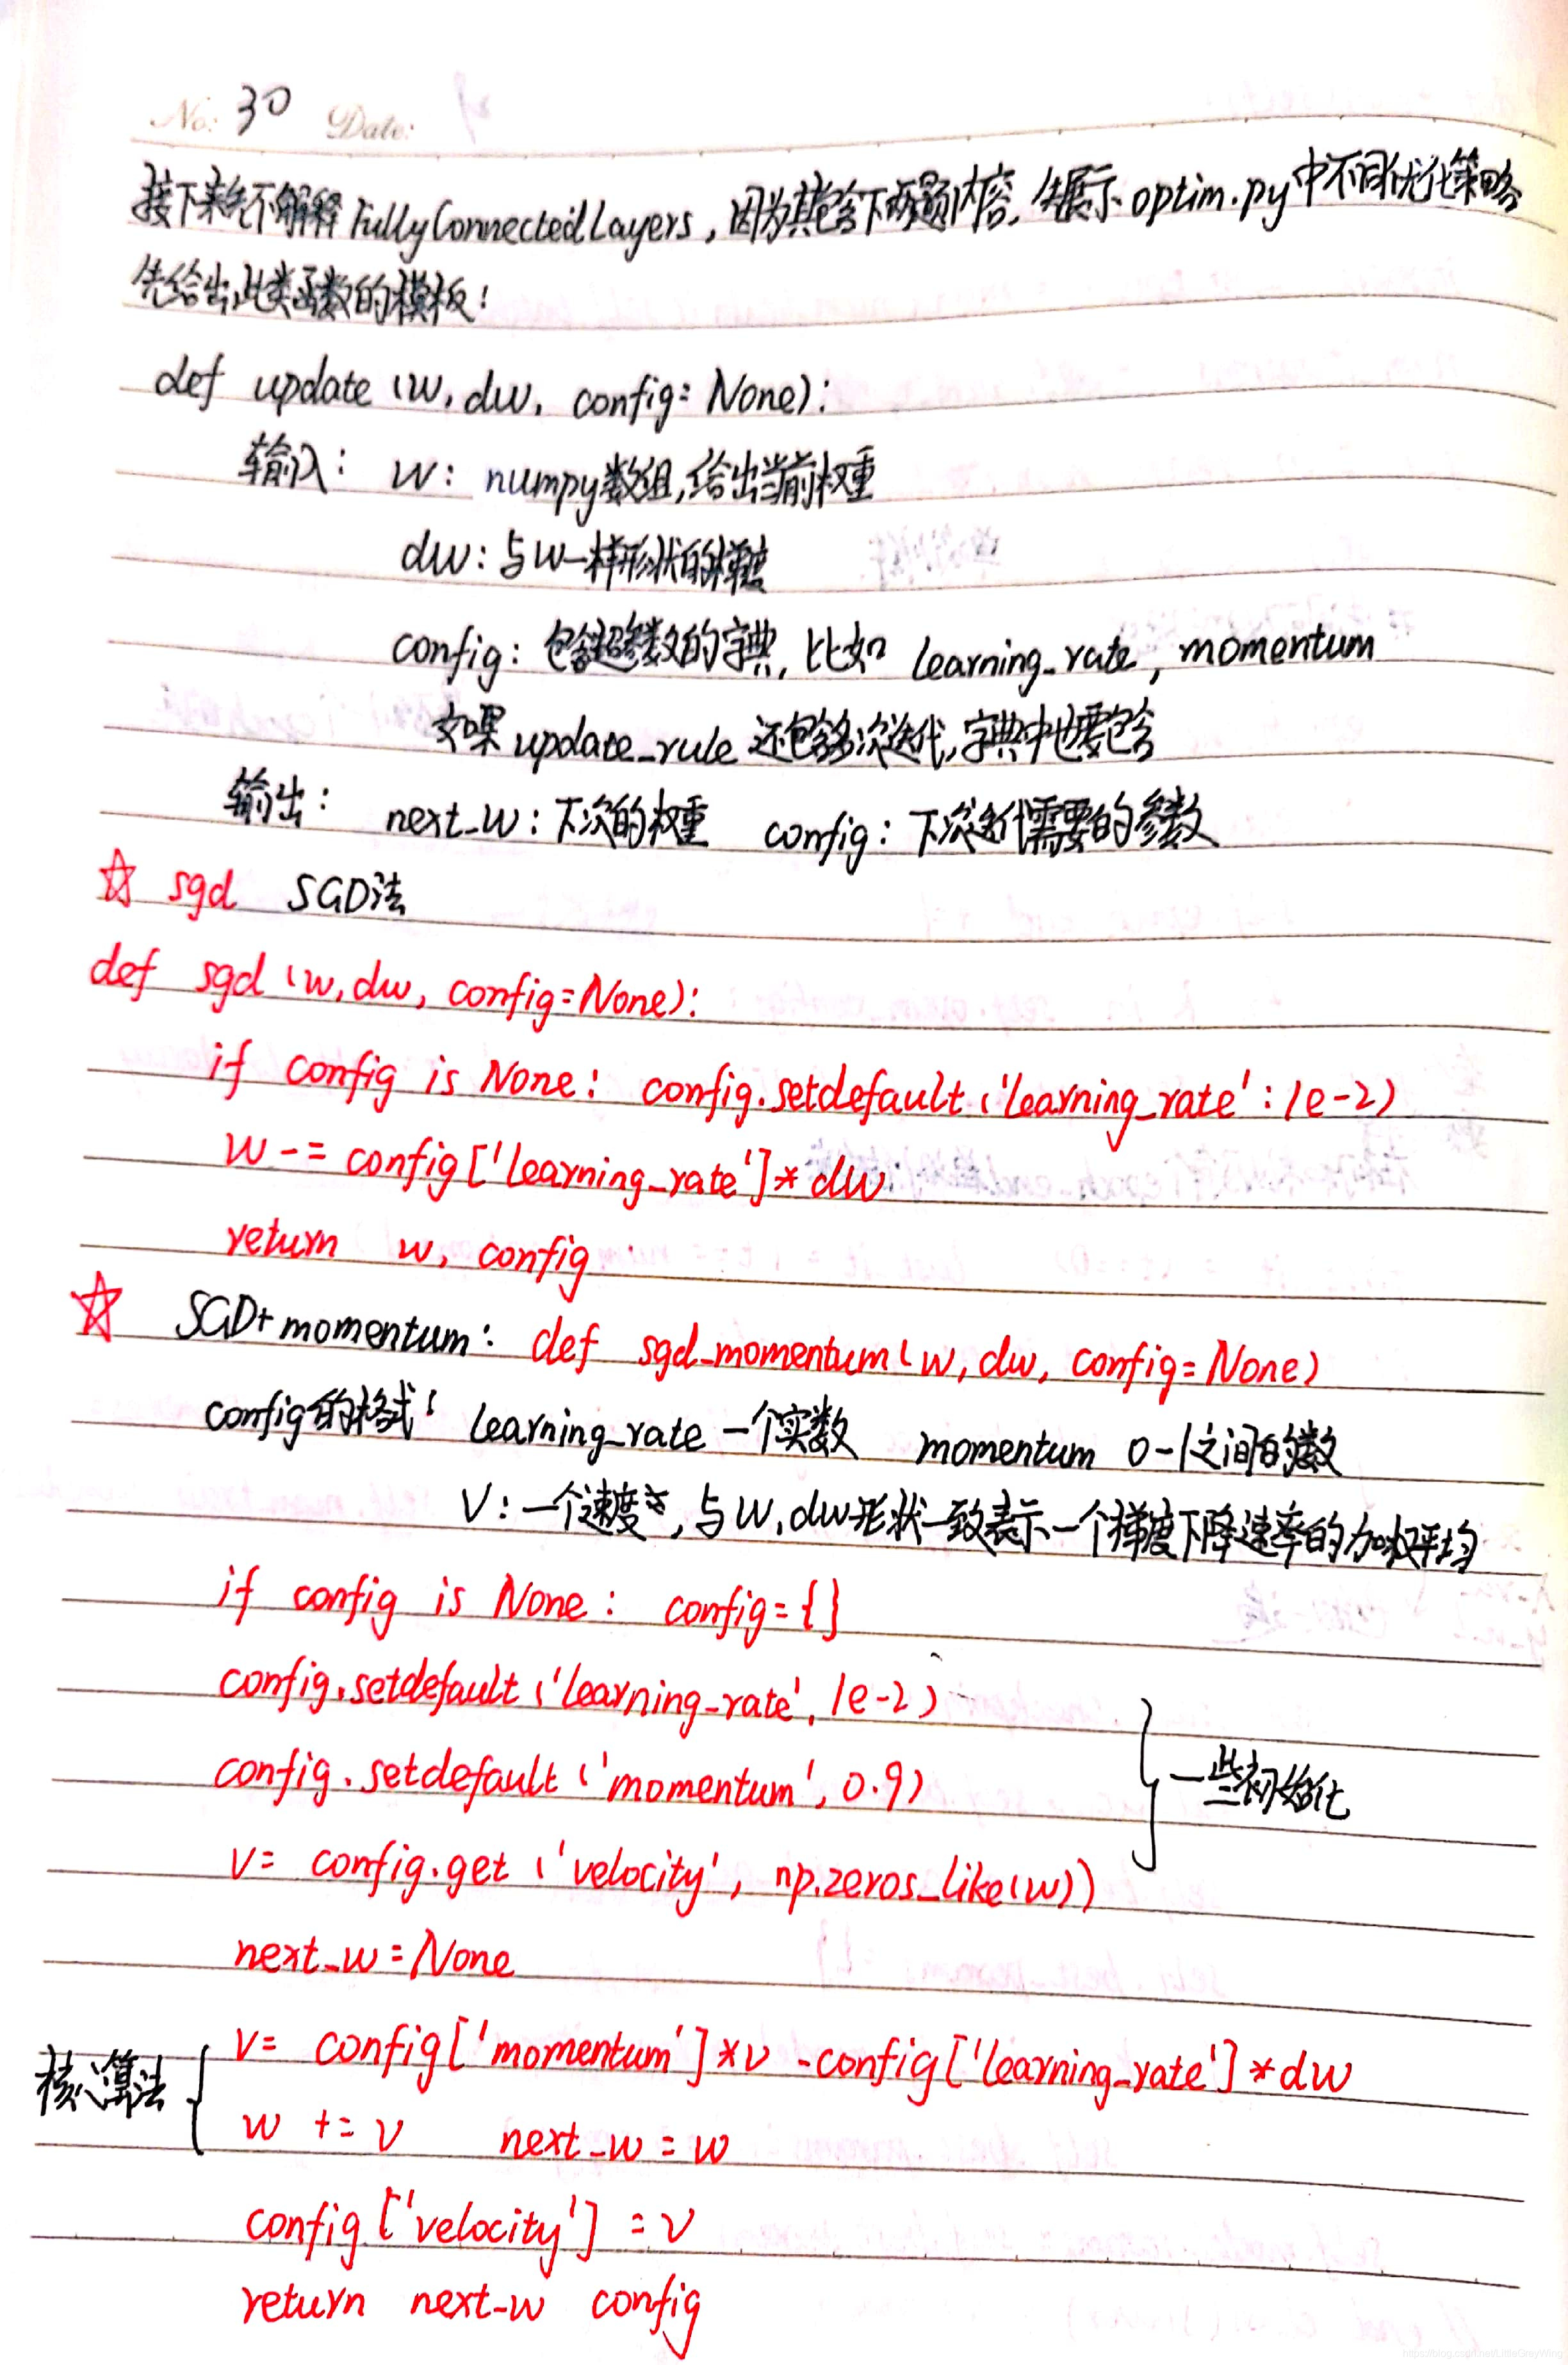 No: 30 Date:
接下来先不解释FullyConnectedLayers，因为其包含下两题内容，先展示optim.py中不同优化策略
先给出此类函数的模板：
def update (w, dw, config=None):
输入： w: numpy数组,给出当前权重
dw: 与w一样形状的梯度
config: 包含超参数的字典, 比如 learning_rate, momentum
如果update_rule还包含多次迭代,字典中也要包含
输出： next_w: 下次的权重 config: 下次迭代需要的参数
☆ sgd SGD法
def sgd (w, dw, config=None):
if config is None: config.setdefault('learning_rate': 1e-2)
w -= config['learning_rate']* dw
return w, config
☆ SGD+momentum: def sgd_momentum(w, dw, config=None)
config的格式： learning_rate 一个实数 momentum 0-1之间的数
V: 一个速度, 与w, dw形状一致表示一个梯度下降速率的加权平均
if config is None: config={}
config.setdefault('learning_rate', 1e-2)
config.setdefault('momentum', 0.9)
一些初始化
v= config.get('velocity', np.zeros_like(w))
next_w=None
核心算法
v= config['momentum']*v -config['learning_rate']*dw
w += v next_w = w
config['velocity'] = v
return next_w config